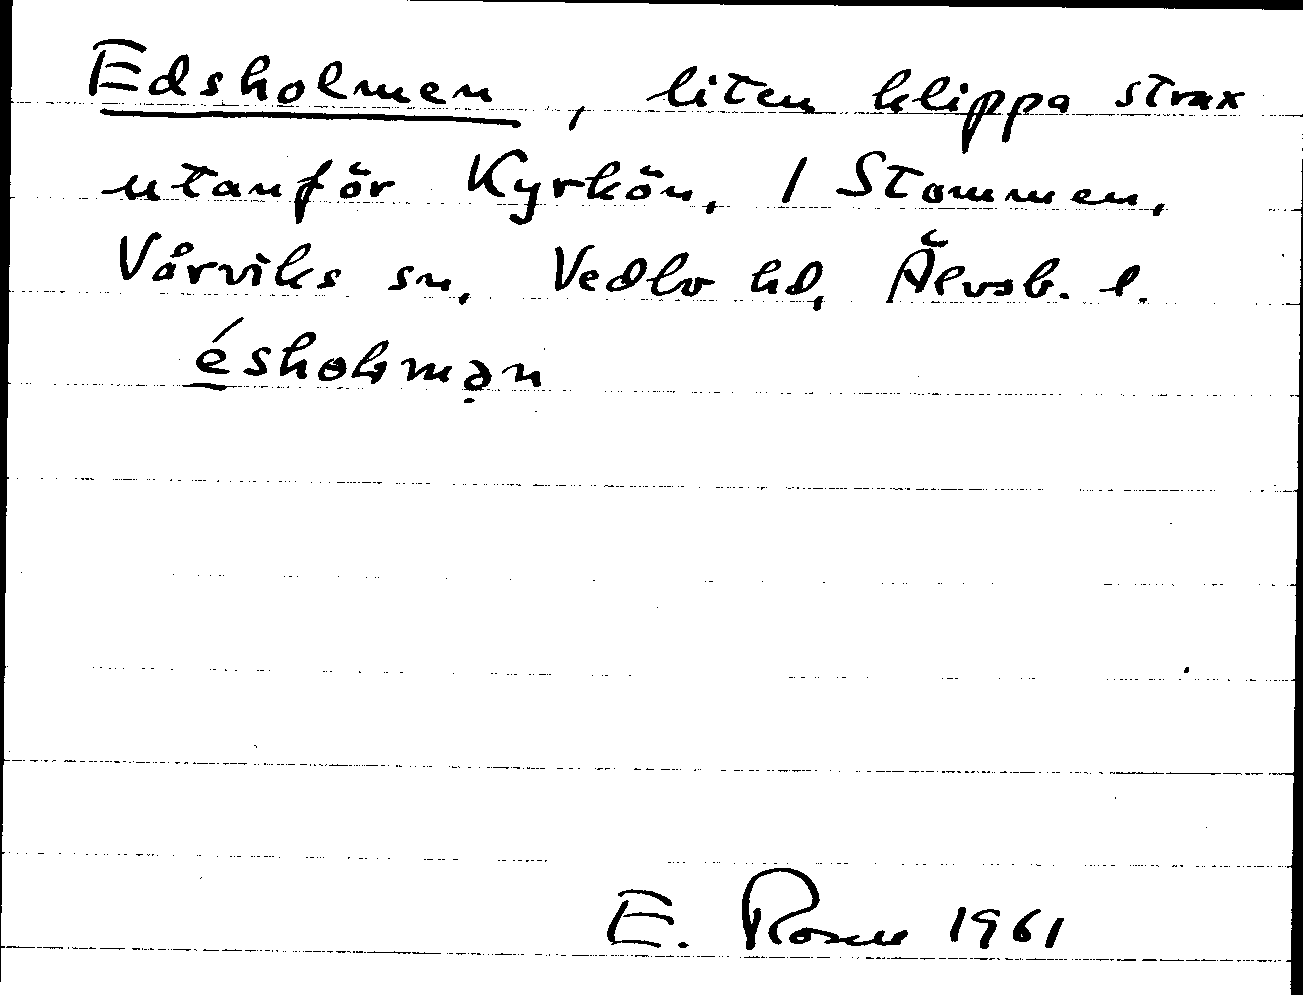 Edsholmen, liten klippa strax
utanför Kyrkön, 1 Stommen,
Vårviks sn, Vedbo hd, Älvsb. l.
ésholmən
E. Rosen 1961